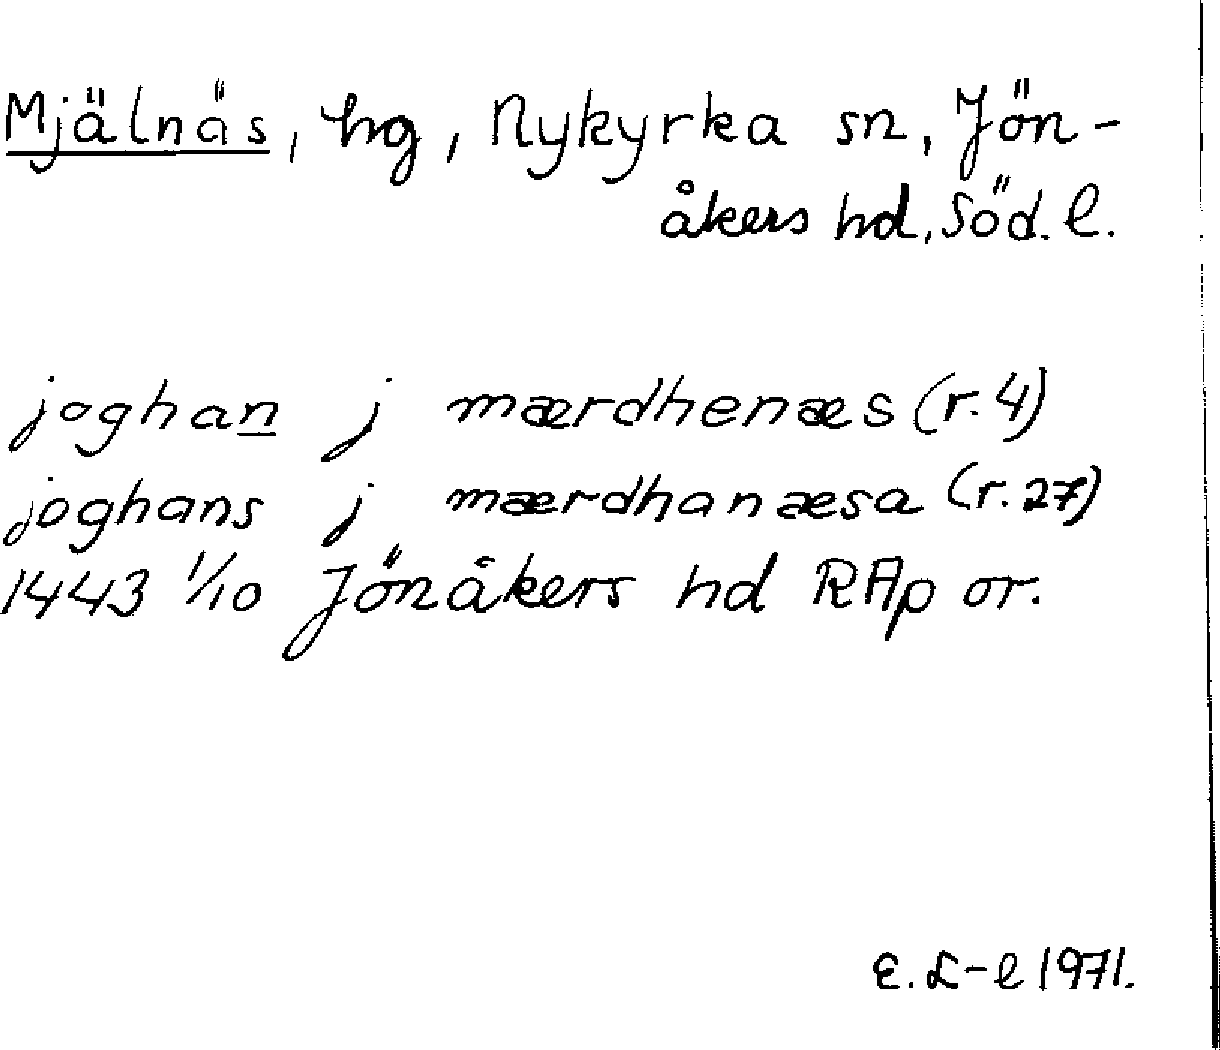 Mjälnäs, hg, Nykyrka sn, Jön-
åkers hd, Söd. l.
joghan j mærdhenæs (r. 4)
joghans j mærdhanæsa (r. 27)
1443 1/10 Jönåkers hd RAp or.
E. L-l 1971.